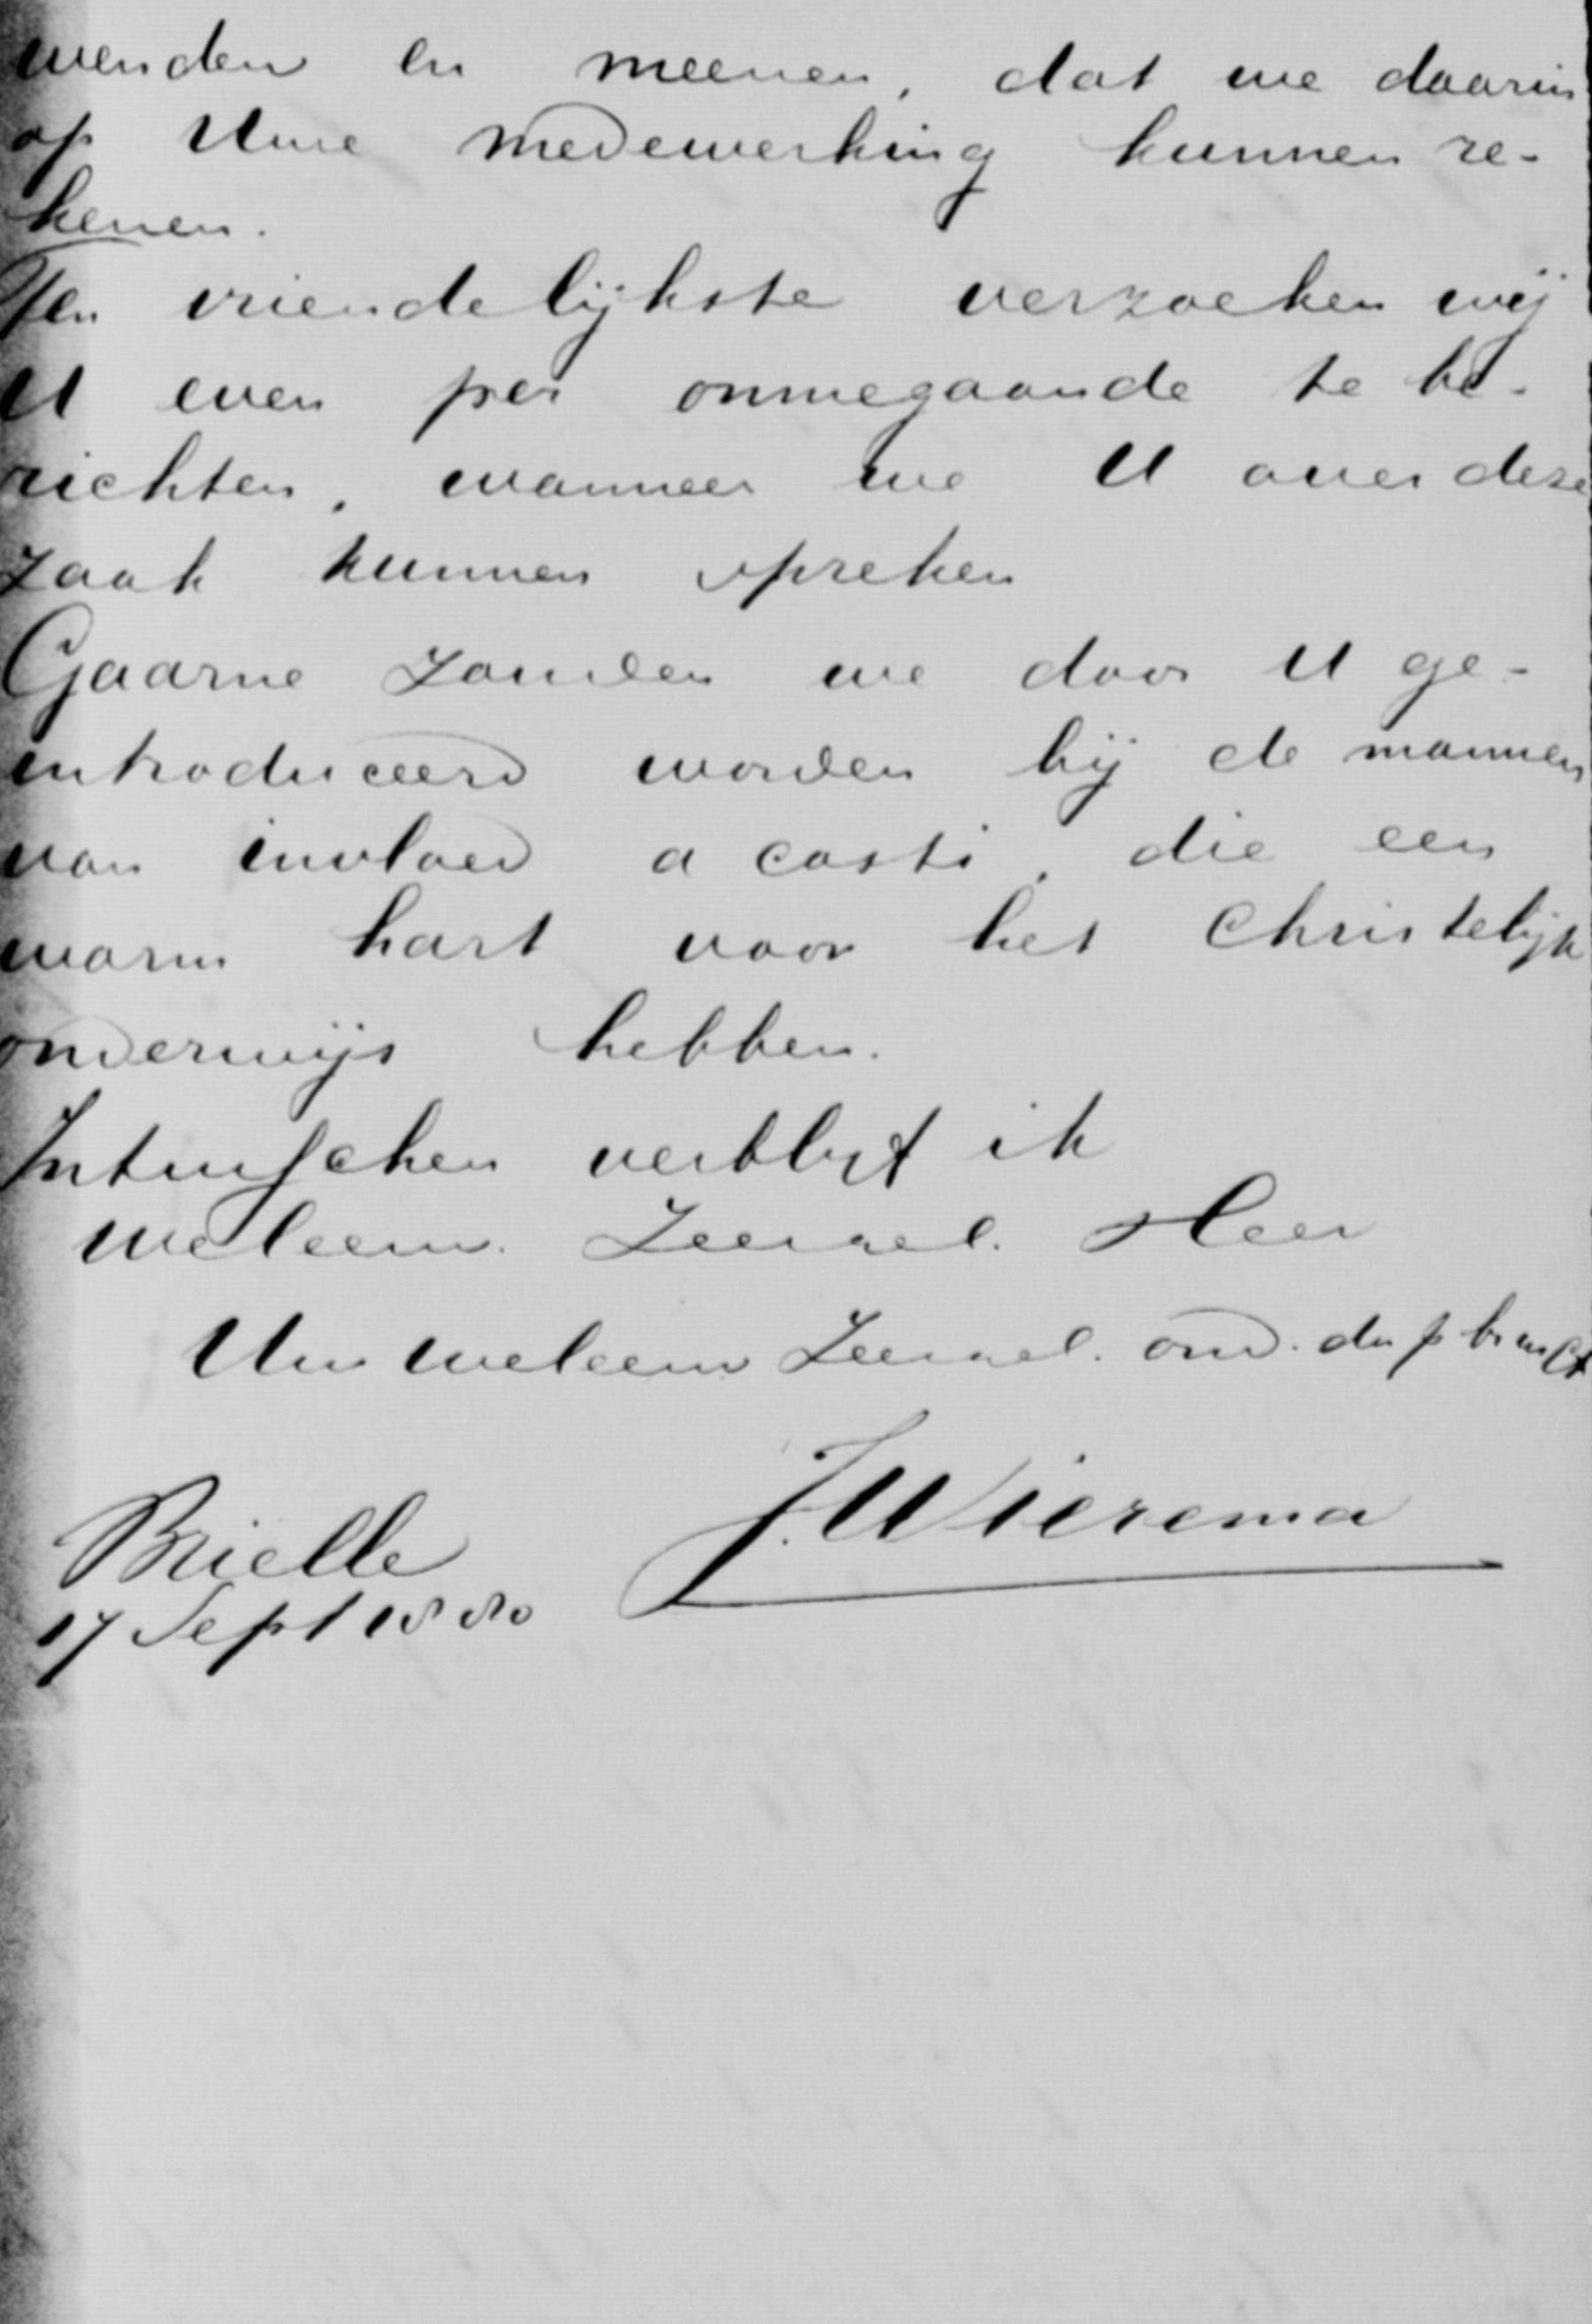 wenden en meenen, dat we daarin
op Uwe medewerking kunnen re-
kenen.
Ten vriendelijkste verzoeken wij
U even per ommegaande te be-
richten, wanneer we U over deze
zaak kunnen spreken
Gaarne zouden we door U ge-
introduceerd worden bij de mannen
van invloed a costi, die een
warm hart voor het Christelijk
onderwijs hebben.
Intusschen verblijf ik
weleerw. Zeergel. Heer
Uw weleerw Zeergel. ond.
J. Wierema
Brielle
17 Sept 1880